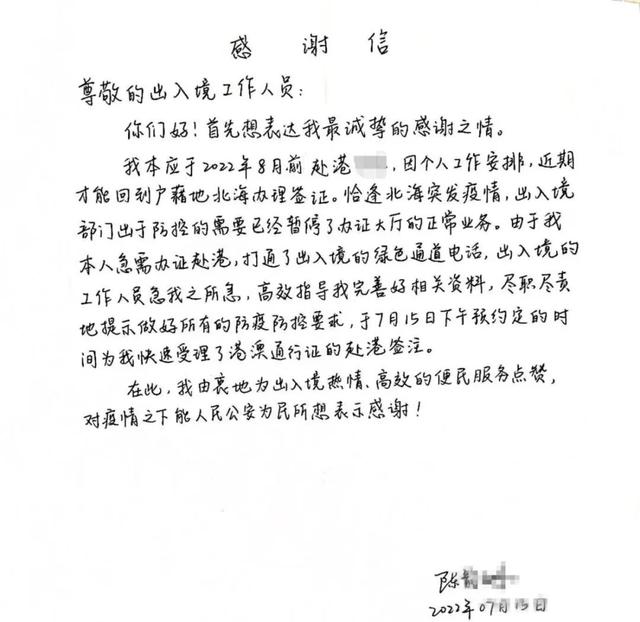 感谢信
尊敬的出入境工作人员：
你们好！首先想表达我最诚挚的感谢之情。
我本应于2022年8月前赴港，因个人工作安排，近期
才能回到户籍地北海办理签证。恰逢北海突发疫情，出入境
部门出于防控的需要已经暂停了办证大厅的正常业务。由于我
本人急需办证赴港，打通了出入境的绿色通道电话，出入境的
工作人员急我之所急，高效指导我完善好相关资料，尽职尽责
地提示做好所有的防疫防控要求，于7月15日下午预约定的时
间为我快速受理了港澳通行证的赴港签注。
在此，我由衷地为出入境热情、高效的便民服务点赞，
对疫情之下能人民公安为民所想表示感谢！
陈
2022年07月15日